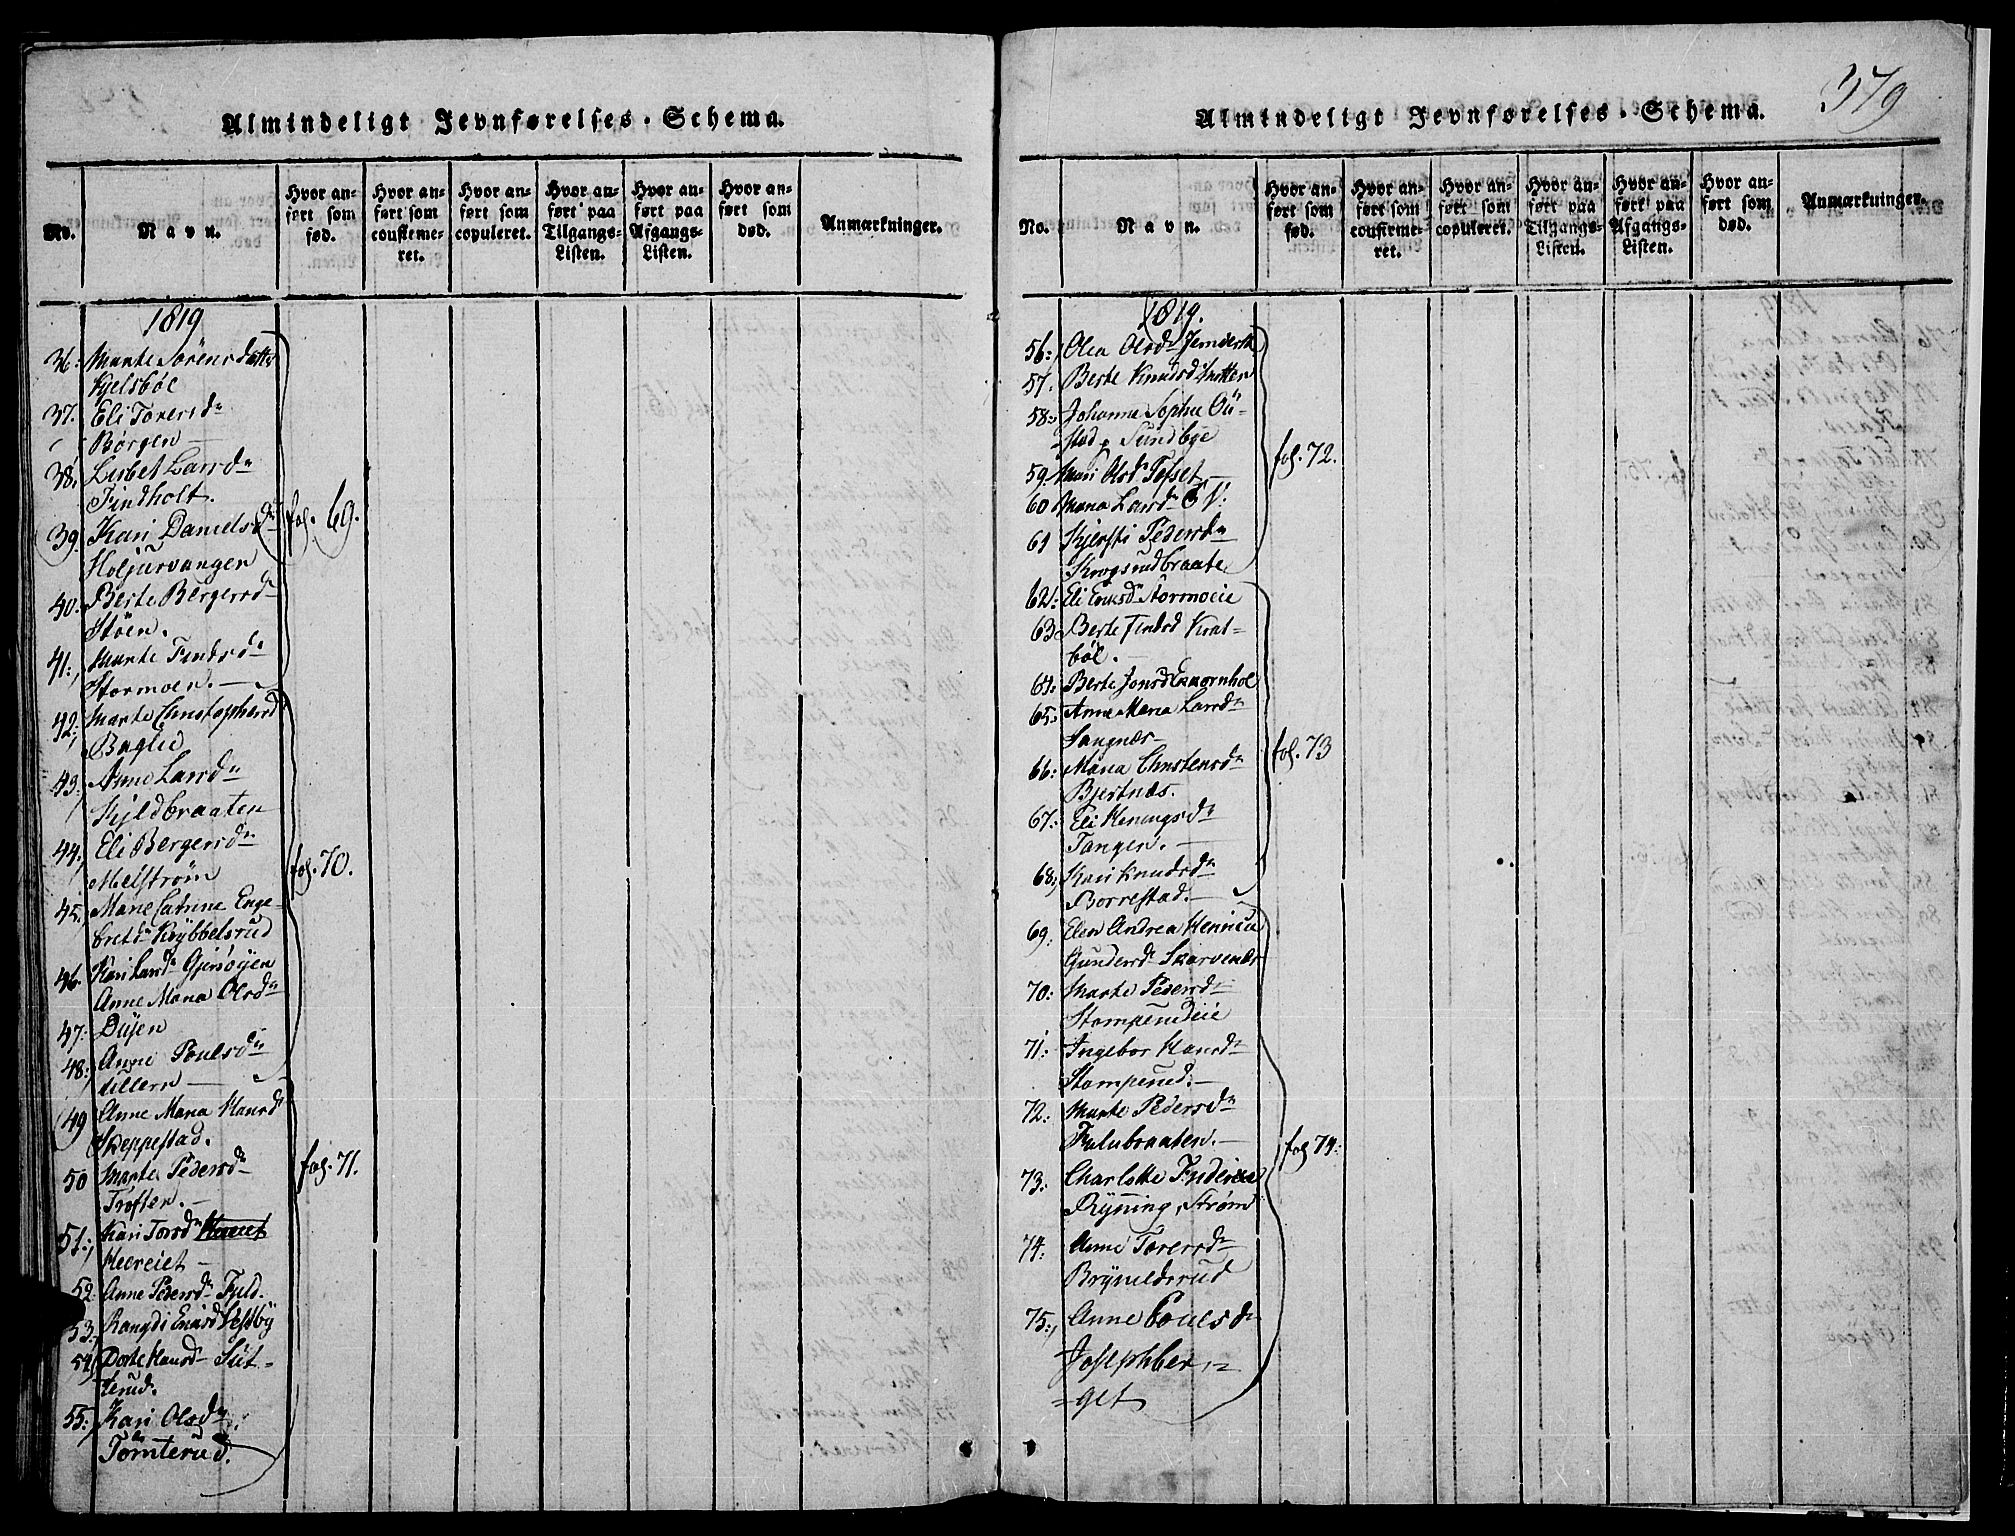 Almindeligt Jevnførelses-Schema.
No.
Navn.
Hvor an-
ført som
fød.
Hvor an-
ført som
confirme-
ret.
Hvor an-
ført som
copuleret.
Hvor an-
ført paa
Tilgangs-
Listen.
Hvor an-
ført paa
Afgangs-
Listen.
Hvor an-
ført som
død.
Anmærkninger.
1819
36. Marte Sörensdatter
Kjelsböe
37. Eli Toxersdr
Börgen
38. Lisbet Larsdr
Findholt.
39. Kari Danielsdr
Holjurvangen
fol. 69.
40. Berte Bergersdr
Stöen.
41. Marte Findsdr
Stormoen.
42. Marte Christophersd
Baglie
43. Anne Larsdr
Kyldbraaten
44. Eli Bergersdr
Melström
fol. 70.
45. Marie Catrine Enge-
bretdr Kÿbbelsrud
46. Kari Larsdr Gjersöyen
Anne Maria Olsdr
47. Diÿen
48. Anne Poulsdr
Ullern
49 Anne Maria Hansd
Skeppestad.
50 Marte Pedersdr
Troften.
fol. 71.
51. Kari Torsdr
Heereiet
52. Anne Pedersdr Fuld.
53. Rangdi Enersd Vestby
54. Dorte Hansdr Süt-
terud.
55. Kari Olsdr
Tomterud.
379
Almindeligt Jevnførelses-Schema.
No.
Navn.
Hvor an-
ført som
fød.
Hvor an-
ført som
confirme-
ret.
Hvor an-
ført som
copuleret.
Hvor an-
ført paa
Tilgangs-
Listen.
Hvor an-
ført paa
Afgangs-
Listen.
Hvor an-
ført som
død.
Anmærkninger.
1819.
56. Olea Olsdr
57. Berte Knudsdr
58. Johanne Sophie Gü-
stad, Sundbye
59. Mari Olsdr Tofset
fol. 72.
60 Maria Larsdr
61 Kjersti Pedersdr
Krogsrudbraate
62. Eli Eriksdr Stormoeie
63 Berte Findsd Krat-
böl.
64. Berte Jonsd Exxornhol
65. Anne Maria Larsdr
Sangnæs
66. Maria Christensdr
Bjertnæs.
fol. 73
67. Eli Heningsdr
Tangen.
68. Kari Knudsdr
Borrestad.
69. Elen Andrea Henricke
Gundersdr Skarvenes
70. Marte Pedersdr
Stomperudeie
71. Ingebor Hansdr
Stomperud.
72. Marte Pedersdr
Fulubraaten.
fol 74.
73. Charlotte Frederikke
Rÿning, Ström
74. Anne Torersdr
Brÿnildsrud
75. Anne Poulsdr
Josephber-
get